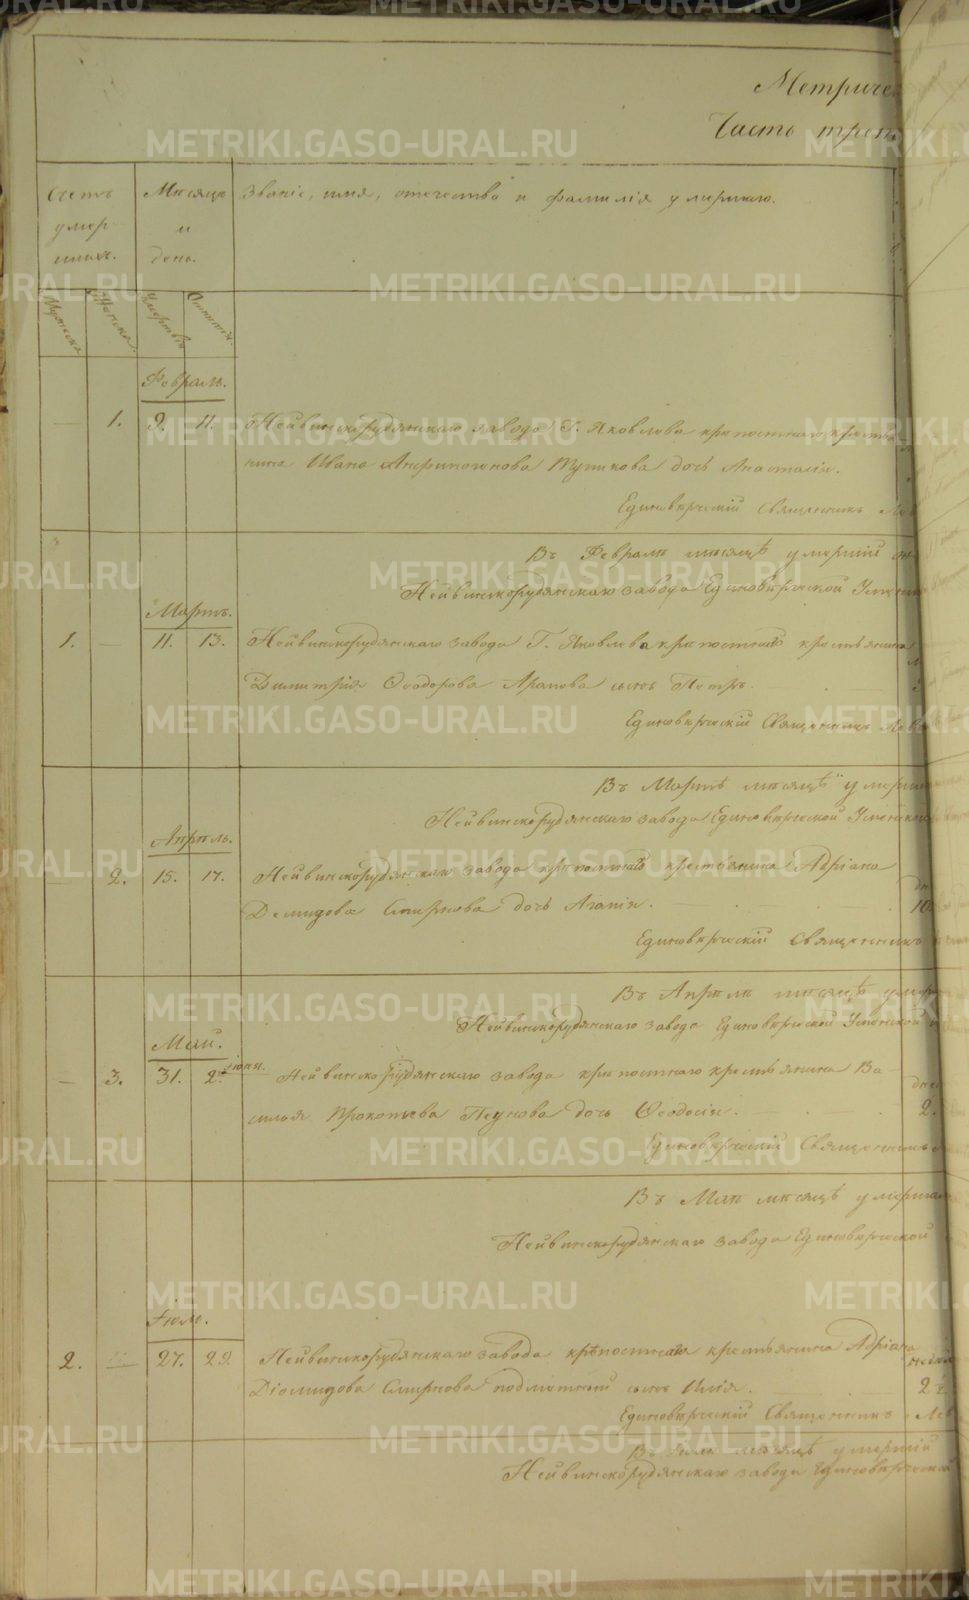 Метриче
Часть трет
Счетъ умершихъ.
Мѣсяцъ и день.
Званіе, имя, отечество и фамилія умершаго.
Мужеска
Женска.
Смерти
Февраль.
1. 9. 11. Нейвинскорудянскаго завода Г. Яковлева крѣпостнаго крестья
нина Ивана Анфиногенова Тупикова дочь Анастасія.
Единовѣрческій Священникъ Лев
Въ Февралѣ мѣсяцѣ умершій
Нейвинскорудянскаго завода Единовѣрческой Успенск
Мартъ.
1. 11. 13. Нейвинскорудянскаго завода Г. Яковлева крѣпостнаго крестьянина
Димитрія Ѳеодорова Арапова сынъ Петръ.
Единовѣрческій Священникъ Лев
Въ Мартѣ мѣсяцѣ умерш
Нейвинскорудянскаго завода Единовѣрческой Успенской
Апрѣль.
2. 15. 17. Нейвинскорудянскаго завода крѣпостнаго крестьянина Адріана
Демидова Смирнова дочь Агапія.
10
Единовѣрческій Священникъ
Въ Апрѣлѣ мѣсяцѣ умер
Нейвинскорудянскаго завода Единовѣрческой Успенской
Май.
3. 31. 2. іюня. Нейвинскорудянскаго завода крѣпостнаго крестьянина Ва-
силья Прокопьева Пеунова дочь Ѳеодосія.
дне
2.
Единовѣрческій Священникъ
Въ Маѣ мѣсяцѣ умерша
Нейвинскорудянскаго завода Единовѣрческой
Іюль.
2. 27. 29. Нейвинскорудянскаго завода крѣпостнаго крестьянина Адріана
Діомидова Смирнова сынъ Илія.
Единовѣрческій Священникъ Лев
Въ Іюлѣ мѣсяцѣ умершій
Нейвинскорудянскаго завода Единовѣрческой
METRIKI.GASO-URAL.RU